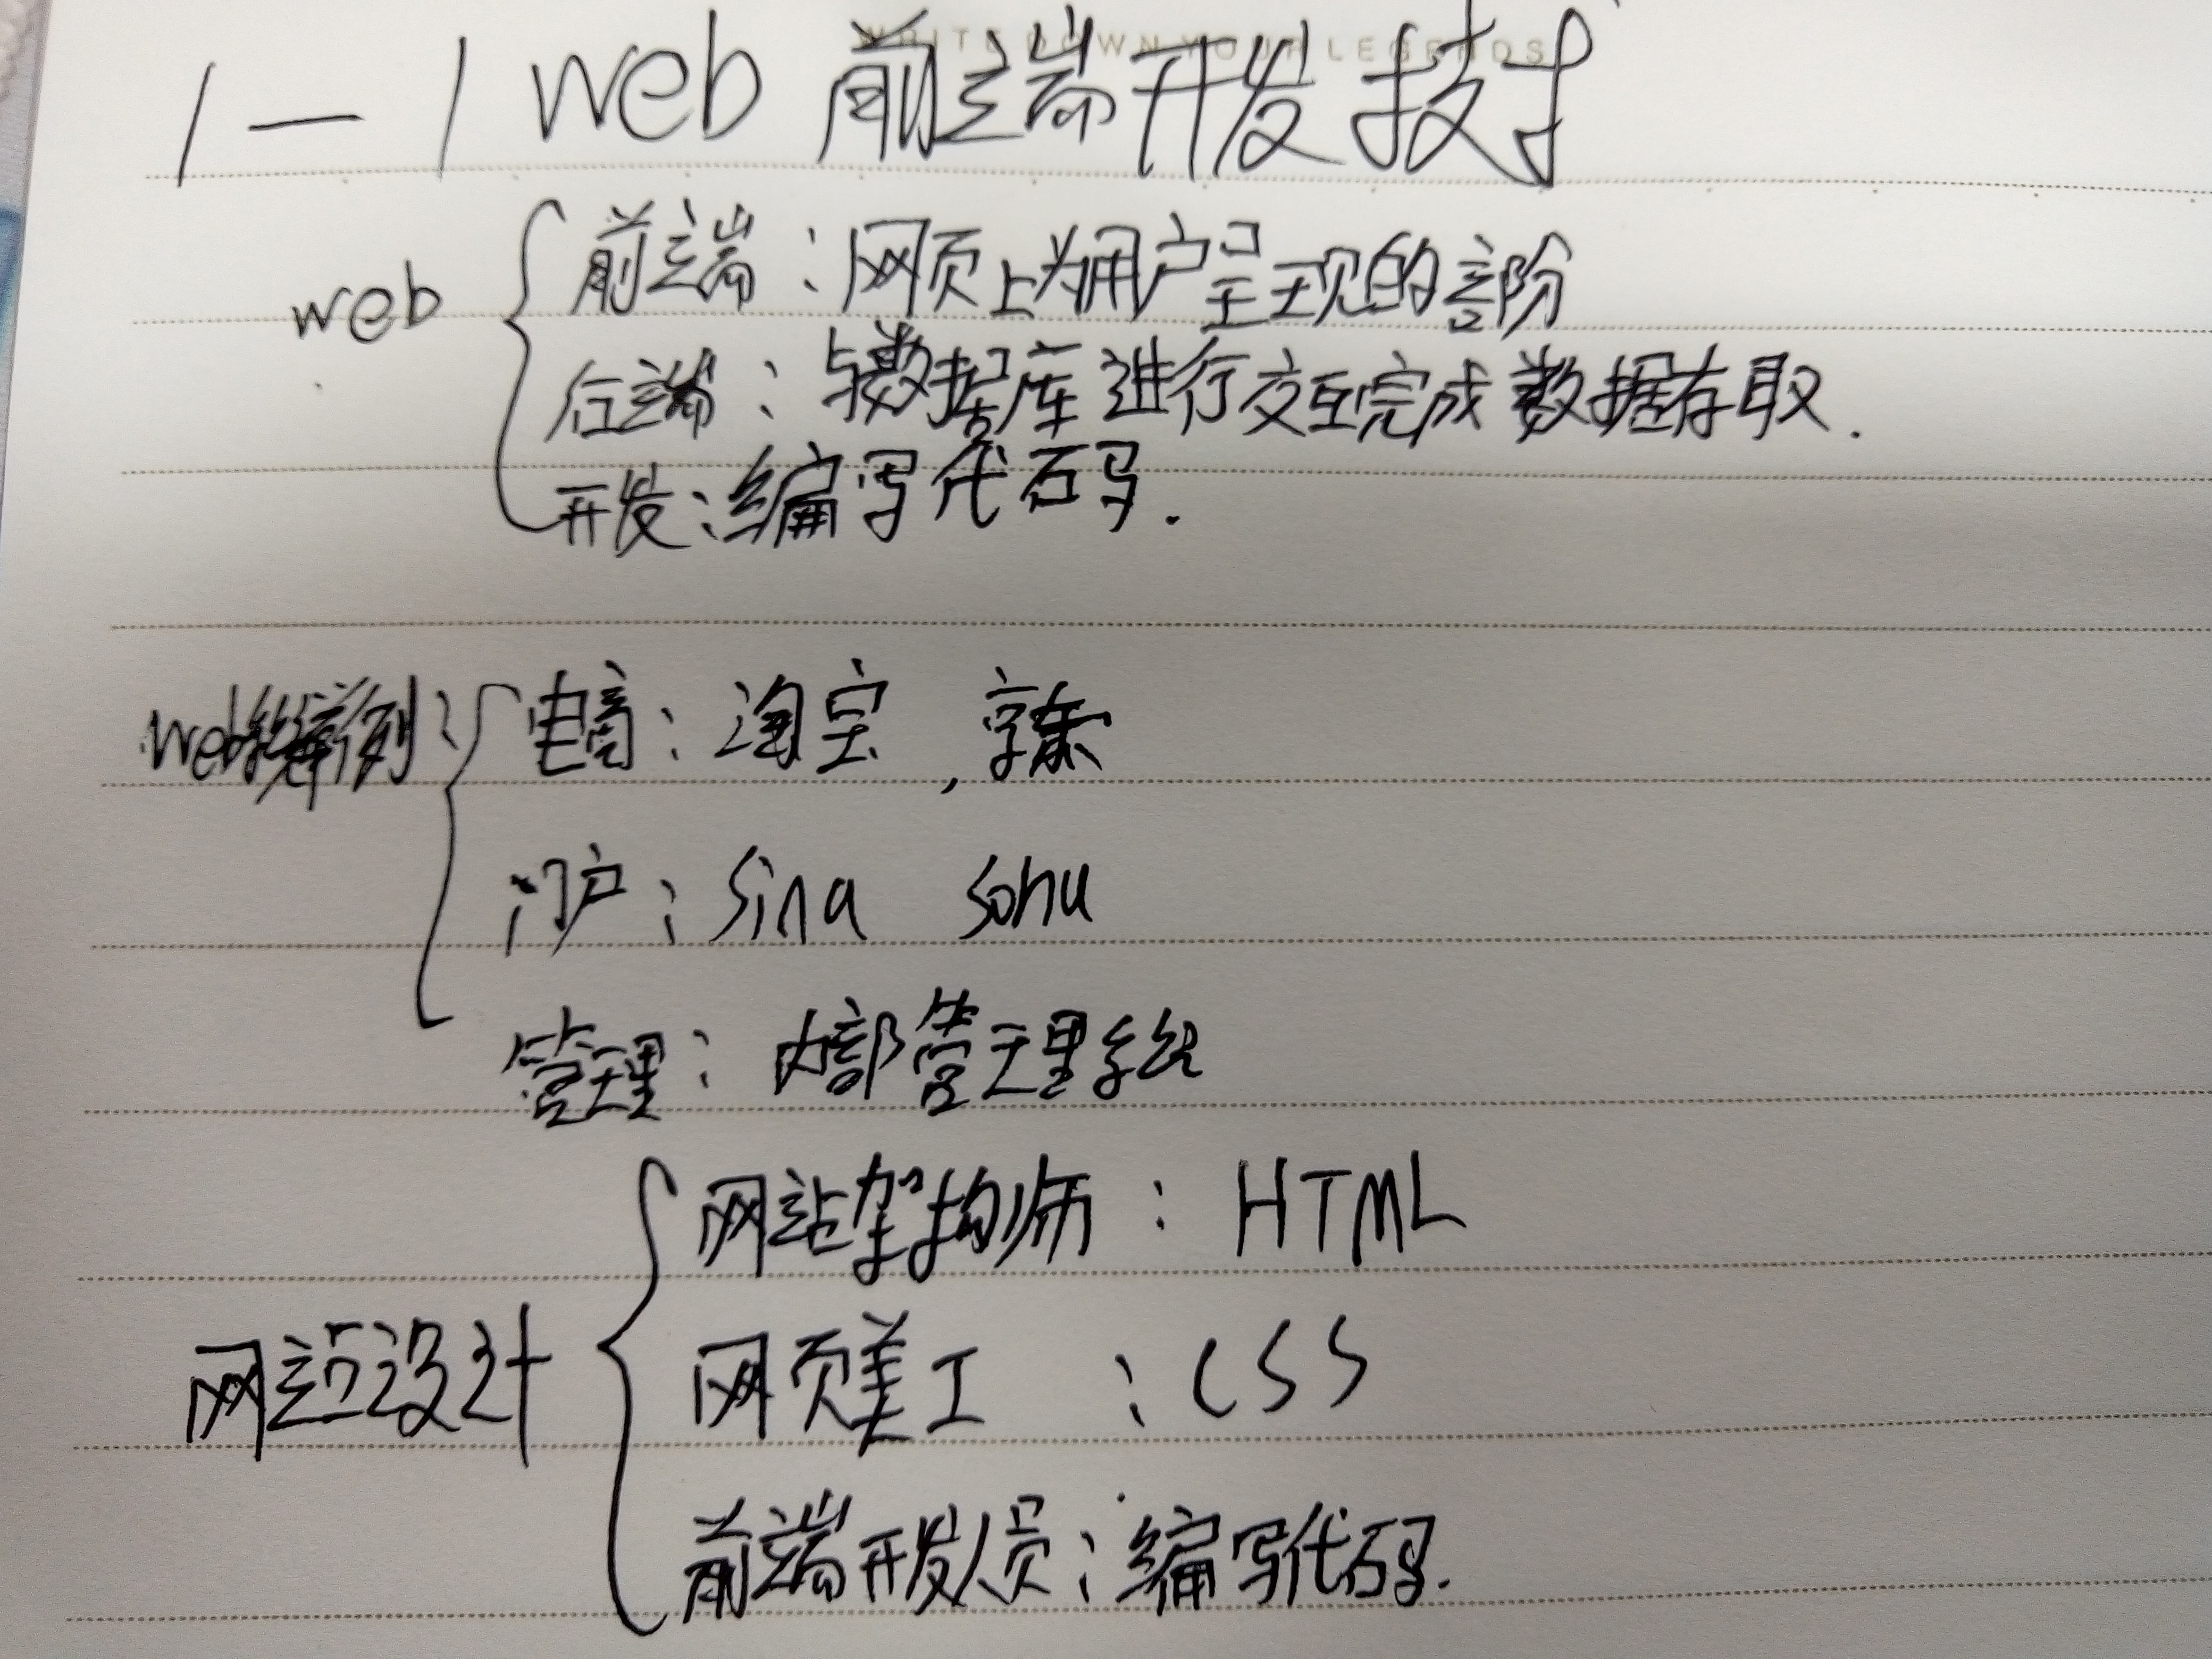 WRITE DOWN YOUR LEGENDS
1—1 web 前端开发技术
web
前端：网页上为用户呈现的部分
后端：与数据库进行交互完成数据存取.
开发：编写代码.
web
电商：淘宝，京东
门户：Sina Sohu
管理：内部管理系统
网站设计
网站架构师：HTML
网页美工：CSS
前端开发人员：编写代码.